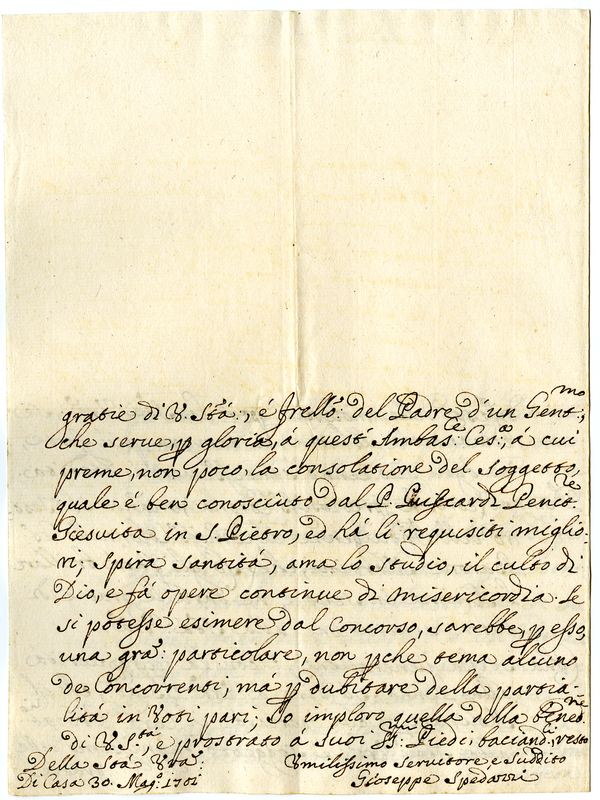 gratie di V. Stá:, é frello: del Padre d'un Gent:mo,
che serve, p gloria, á quest' Ambas:e Ces:o, á cui
preme, non poco, la consolatione del soggetto,
quale é ben conosciuto dal P. Guiscardi Penit:re
Giesuita in S. Pietro, ed há li requisiti miglio-
ri; spira santitá, ama lo studio, il culto di
Dio, e fá opere continue di misericordia. Se
si potesse esimere dal Concorso, sarebbe, p esso,
una gra: particolare, non pche tema alcuno
de Concorrenti, má p dubitare della partia-
litá in Voti pari; Io imploro quella della Bened:ne
di V. S:tá, e prostrato á suoi SS:mi Piedi, baciandoli, resto
Della Stá Vra:
Di Casa 30. Mag:o 1701
Vmilissimo servitore e suddito
Gioseppe Spedazzi